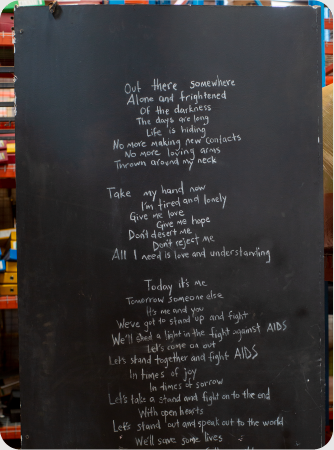 Out there somewhere
Alone and frightened
Of the darkness
The days are long
Life is hiding
No more making new contacts
No more loving arms
Thrown around my neck
Take my hand now
I'm tired and lonely
Give me love
Give me hope
Don't desert me
Don't reject me
All I need is love and understanding
Today it's me
Tomorrow someone else
It's me and you
We've got to stand up and fight
We'll shed a light in the fight against AIDS
Let's come on out
Let's stand together and fight AIDS
In times of joy
In times of sorrow
Let's take a stand and fight on to the end
With open hearts
Let's stand out and speak out to the world
We'll save some lives